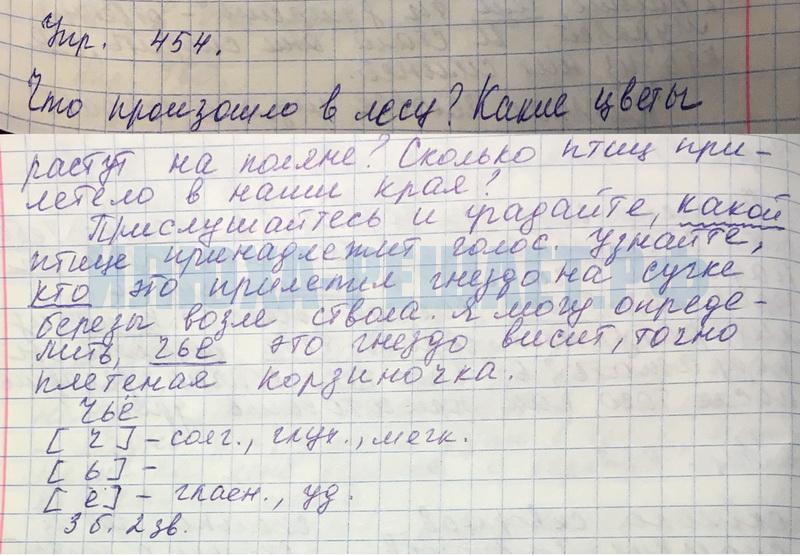 Упр. 454.
Что произошло в лесу? Какие цветы
растут на поляне? Сколько птиц при-
летело в наши края?
Прислушайтесь и угадайте, какой
птице принадлежит голос. Узнайте,
кто это прилепил гнездо на сучке
березы возле ствола. Я могу опреде-
лить, чьё это гнездо висит, точно
плетеная корзиночка.
Чьё
[ ч ] – согл., глух., мягк.
[ ь ] –
[ ё ] – гласн., уд.
3 б. 2 зв.